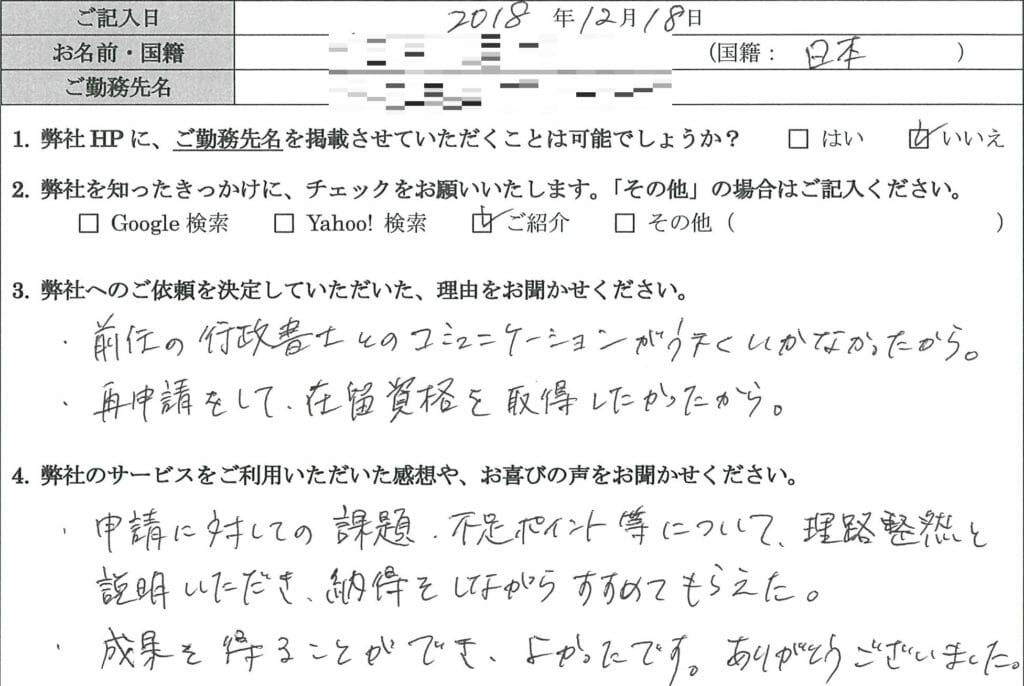 ご記入日 2018 年 12月 18日
お名前・国籍 (国籍： 日本 )
ご勤務先名
1. 弊社 HP に、ご勤務先名を掲載させていただくことは可能でしょうか？ □ はい ☑ いいえ
2. 弊社を知ったきっかけに、チェックをお願いいたします。「その他」の場合はご記入ください。
□ Google 検索 □ Yahoo! 検索 ☑ ご紹介 □ その他 ( )
3. 弊社へのご依頼を決定していただいた、理由をお聞かせください。
・前任の行政書士とのコミュニケーションがうまくいかなかったから。
・再申請をして、在留資格を取得したかったから。
4. 弊社のサービスをご利用いただいた感想や、お喜びの声をお聞かせください。
・申請に対しての課題・不足ポイント等について、理路整然と
説明いただき、納得をしながらすすめてもらえた。
・成果を得ることができ、よかったです。ありがとうございました。